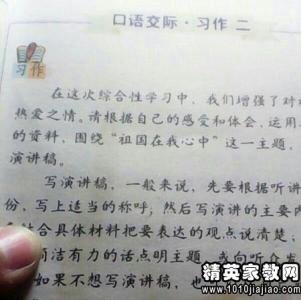 口语交际·习作 二
习作
在这次综合性学习中，我们增强了对
热爱之情。请根据自己的感受和体会，运用
的资料，围绕“祖国在我心中”这一主题，
演讲稿。
写演讲稿，一般来说，先要根据听讲
份，写上适当的称呼；然后写演讲的主要内
结合具体材料把要表达的观点说清楚，
简洁有力的话点明主题，或向听众发
如果不想写演讲稿，也
精英家教网
www.1010jiajiao.com